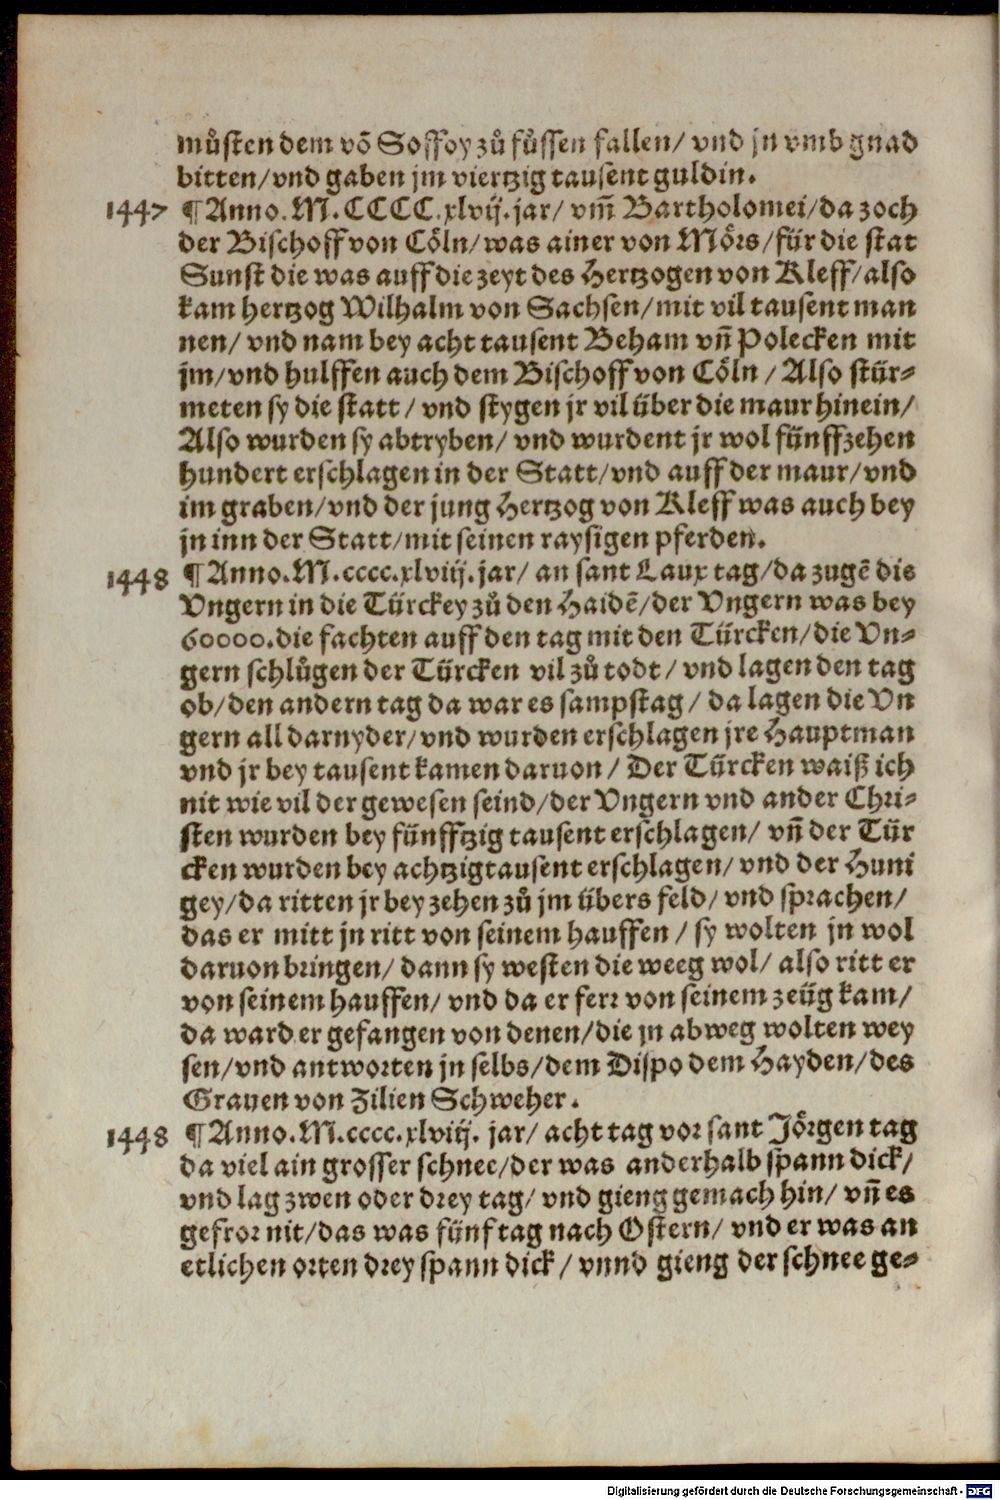 můsten dem võ Soffoy zů fůssen fallen/ vnd jn vmb gnad
bitten/vnd gaben jm viertzig tausent guldin.
1447 ¶ Anno. M. CCCC.xlvij.jar/ vm̃ Bartholomei/da zoch
der Bischoff von Cöln/was ainer von Mörs/für die stat
Sunst die was auff die zeyt des Hertzogen von Kleff/also
kam hertzog Wilhalm von Sachsen/mit vil tausent man
nen/ vnd nam bey acht tausent Beham vñ Polecken mit
jm/vnd hulffen auch dem Bischoff von Cöln / Also stür-
meten sy die statt / vnd stygen jr vil über die maur hinein/
Also wurden sy abtryben/ vnd wurdent jr wol fünffzehen
hundert erschlagen in der Statt/vnd auff der maur/vnd
im graben/vnd der jung Hertzog von Kleff was auch bey
jn inn der Statt/mit seinen raysigen pferden.
1448 ¶ Anno.M.cccc.xlviij.jar/ an sant Laux tag/da zugẽ dis
Vngern in die Türckey zů den Haidẽ/der Vngern was bey
60000.die fachten auff den tag mit den Türcken/die Vn-
gern schlůgen der Türcken vil zů todt / vnd lagen den tag
ob/den andern tag da war es sampstag / da lagen die Vn
gern all darnyder/vnd wurden erschlagen jre Hauptman
vnd jr bey tausent kamen daruon / Der Türcken waiß ich
nit wie vil der gewesen seind/der Vngern vnd ander Chri-
sten wurden bey fünfftzig tausent erschlagen/ vñ der Tür
cken wurden bey achtzigtausent erschlagen/ vnd der Huni
gey/da ritten jr bey zehen zů jm übers feld/ vnd sprachen/
das er mitt jn ritt von seinem hauffen / sy wolten jn wol
daruon bringen/ dann sy westen die weeg wol/ also ritt er
von seinem hauffen/ vnd da er ferr von seinem zeüg kam/
da ward er gefangen von denen/die jn abweg wolten wey
sen/vnd antworten jn selbs/dem Dispo dem Hayden/des
Grauen von Zilien Schweher.
1448 ¶ Anno.M.cccc.xlviij. jar/ acht tag vor sant Jörgen tag
da viel ain grosser schnee/der was anderhalb spann dick/
vnd lag zwen oder drey tag/ vnd gieng gemach hin/ vñ es
gefror nit/das was fünf tag nach Ostern/ vnd er was an
etlichen orten drey spann dick / vnnd gieng der schnee ge-
Digitalisierung gefördert durch die Deutsche Forschungsgemeinschaft - DFG